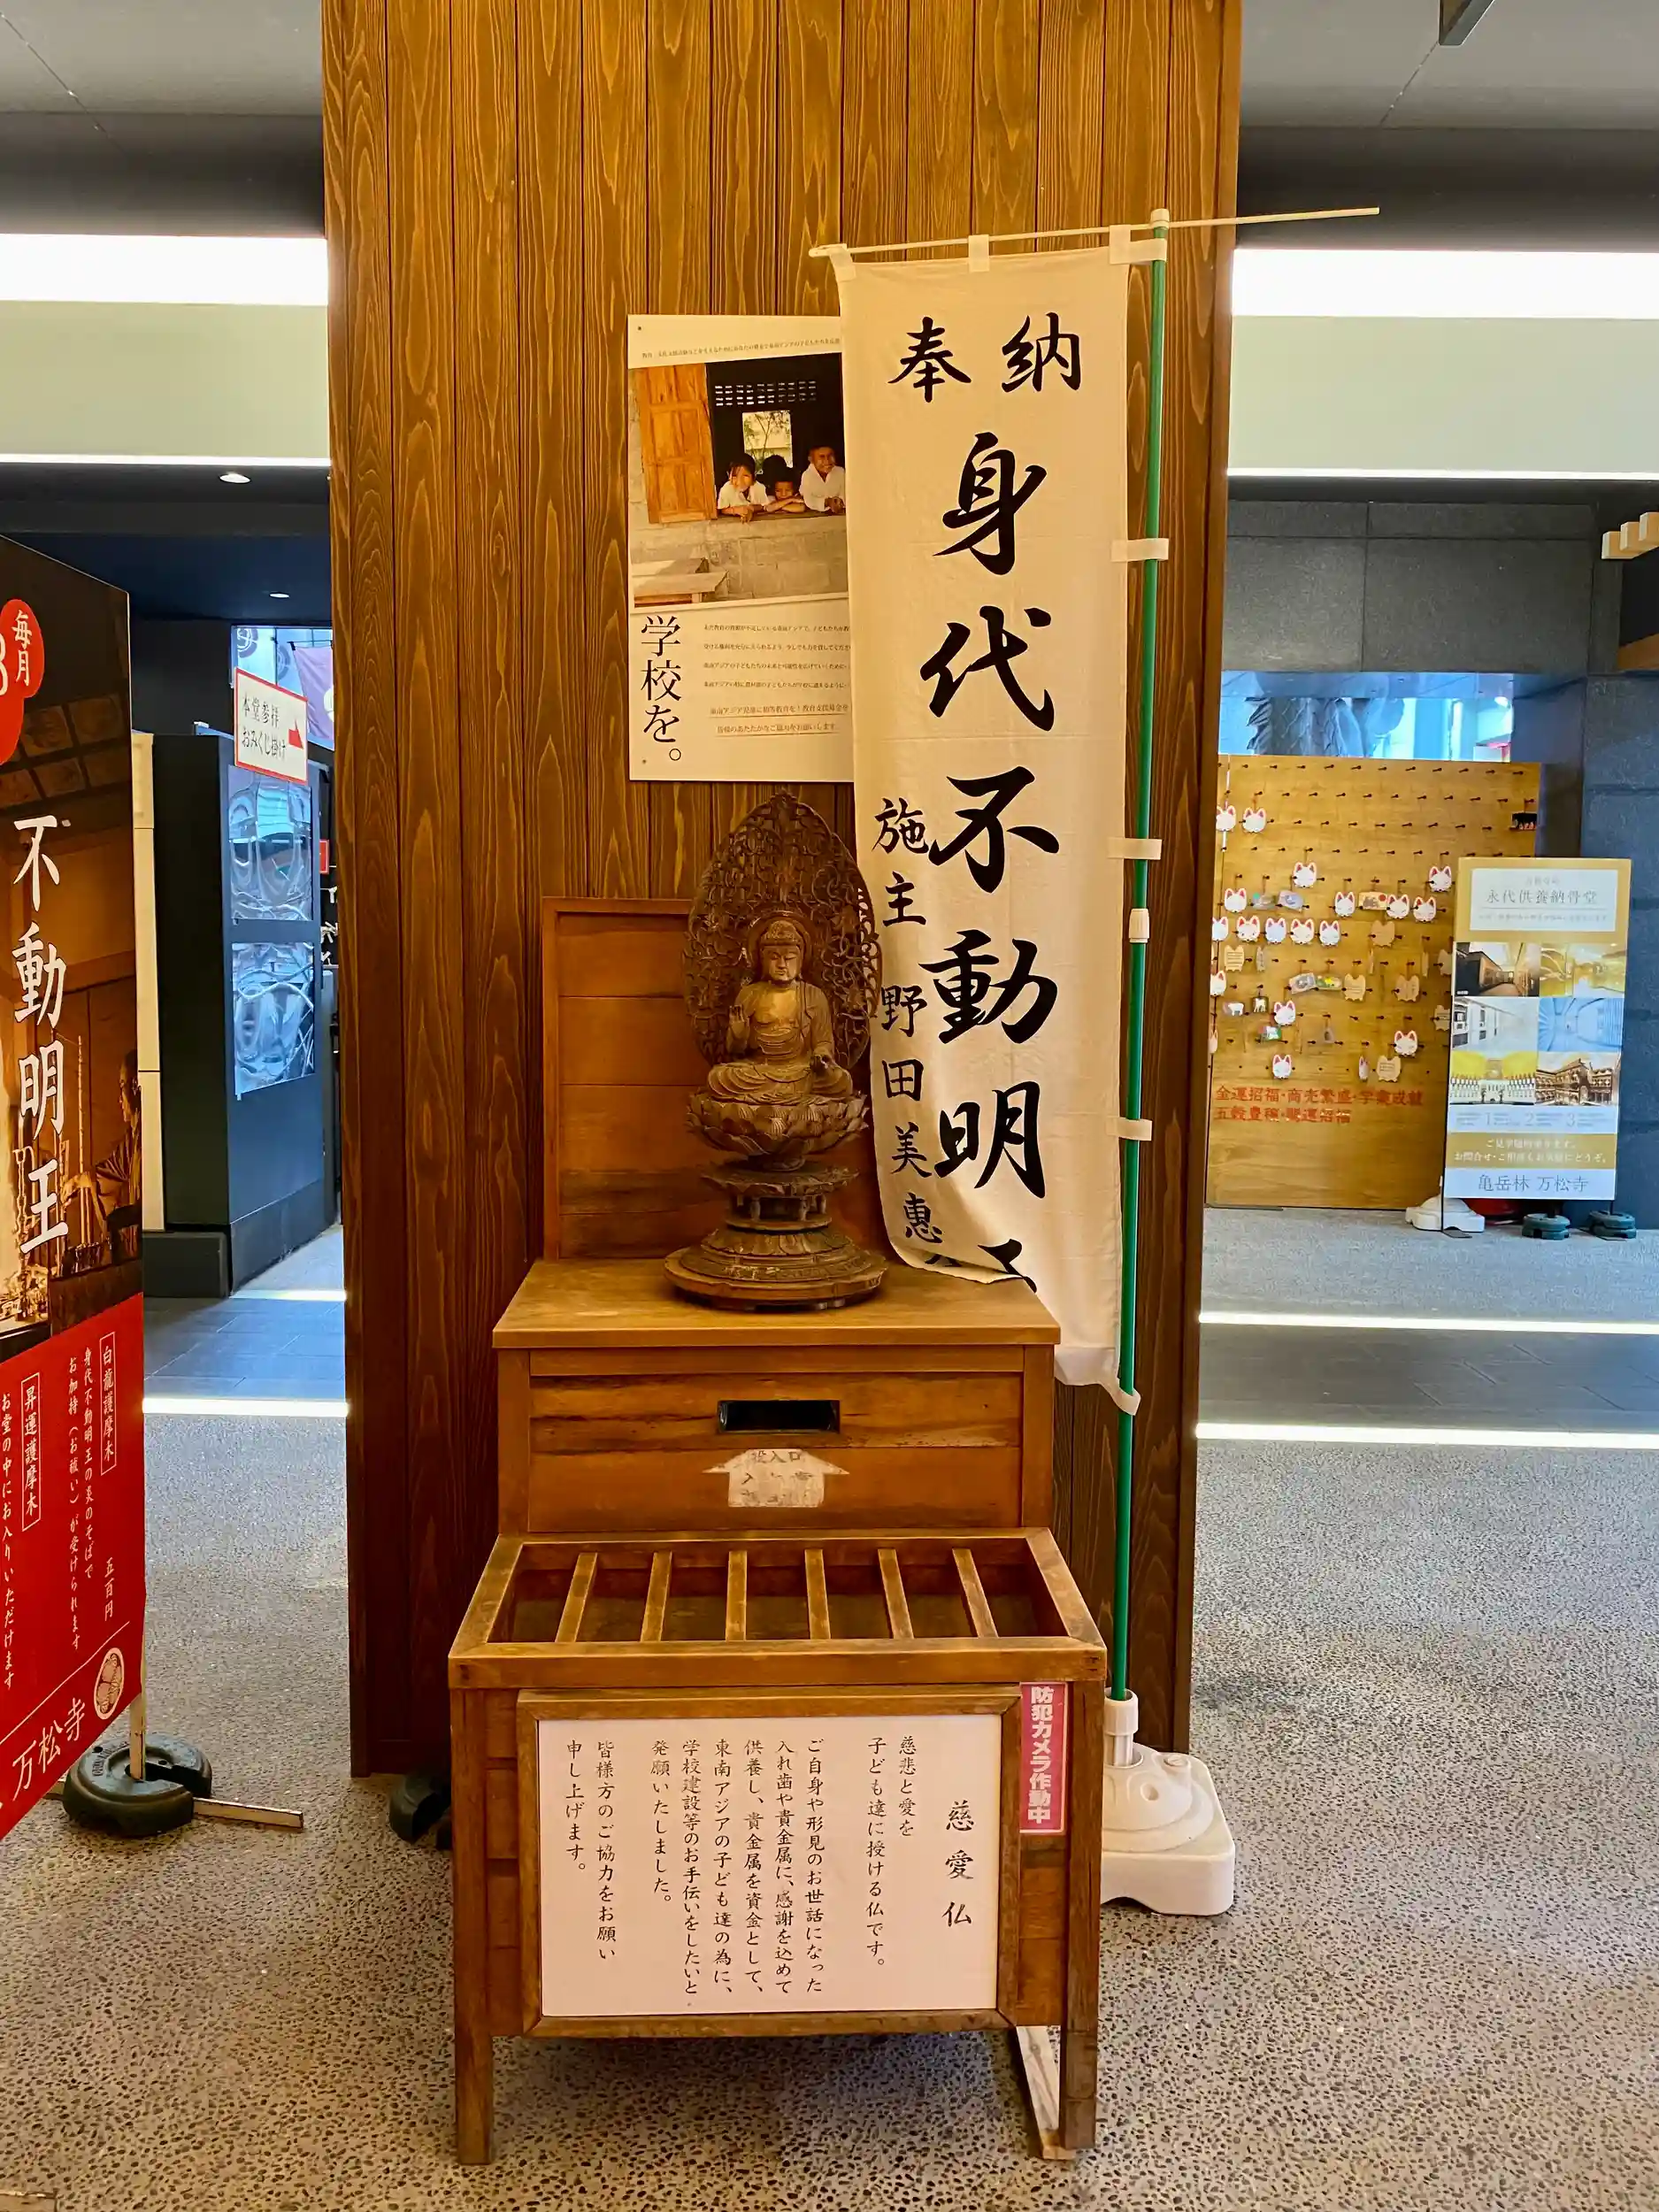 奉納
身代不動明
施主 野田美恵
学校を。
毎月
不動明王
白龍護摩木
五百円
身代不動明王の炎のそばで
お加持(お祓い)が受けられます
昇運護摩木
お堂の中にお入りいただけます
万松寺
本堂参拝
おみくじ掛け
投入口
防犯カメラ作動中
慈愛仏
慈悲と愛を
子ども達に授ける仏です。
ご自身や形見のお世話になった
入れ歯や貴金属に、感謝を込めて
供養し、貴金属を資金として、
東南アジアの子ども達の為に、
学校建設等のお手伝いをしたいと
発願いたしました。
皆様方のご協力をお願い
申し上げます。
金運招福・商売繁盛・学業成就
永代供養納骨堂
1
2
3
ご見学随時承ります。
亀岳林 万松寺